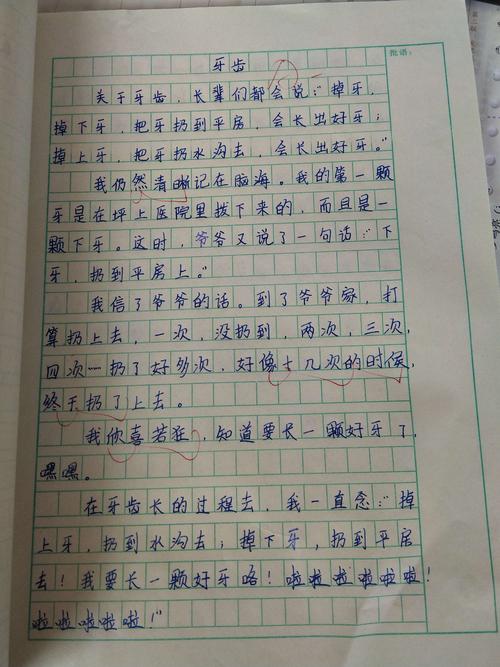 批语：
牙齿
关于牙齿，长辈们都会说：“掉牙，
掉下牙，把牙扔到平房，会长出好牙；
掉上牙，把牙扔水沟去，会长出好牙。”
我仍然清晰记在脑海。我的第一颗
牙是在坪上医院里拨下来的，而且是一
颗下牙。这时，爷爷又说了一句话：“下
牙，扔到平房上。”
我信了爷爷的话。到了爷爷家，打
算扔上去，一次，没扔到，两次，三次，
四次……扔了好多次，好像十几次的时侯，
终于扔了上去。
我欣喜若狂，知道要长一颗好牙了，
嘿嘿。
在牙齿长的过程去，我一直念：“掉
上牙，扔到水沟去；掉下牙，扔到平房
去！我要长一颗好牙咯！啦啦啦啦啦啦！
啦啦啦啦啦！”